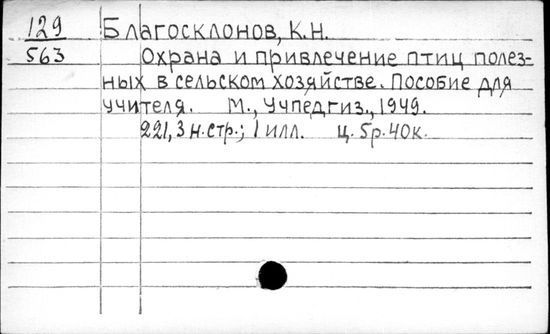 129 Благосклонов, К.Н.
563 Охрана и привлечение птиц полез-
ных в сельском хозяйстве. Пособие для
учителя. М., Учпедгиз., 1949.
221, 3 н. стр.; 1 илл. ц. 5р. 40к.